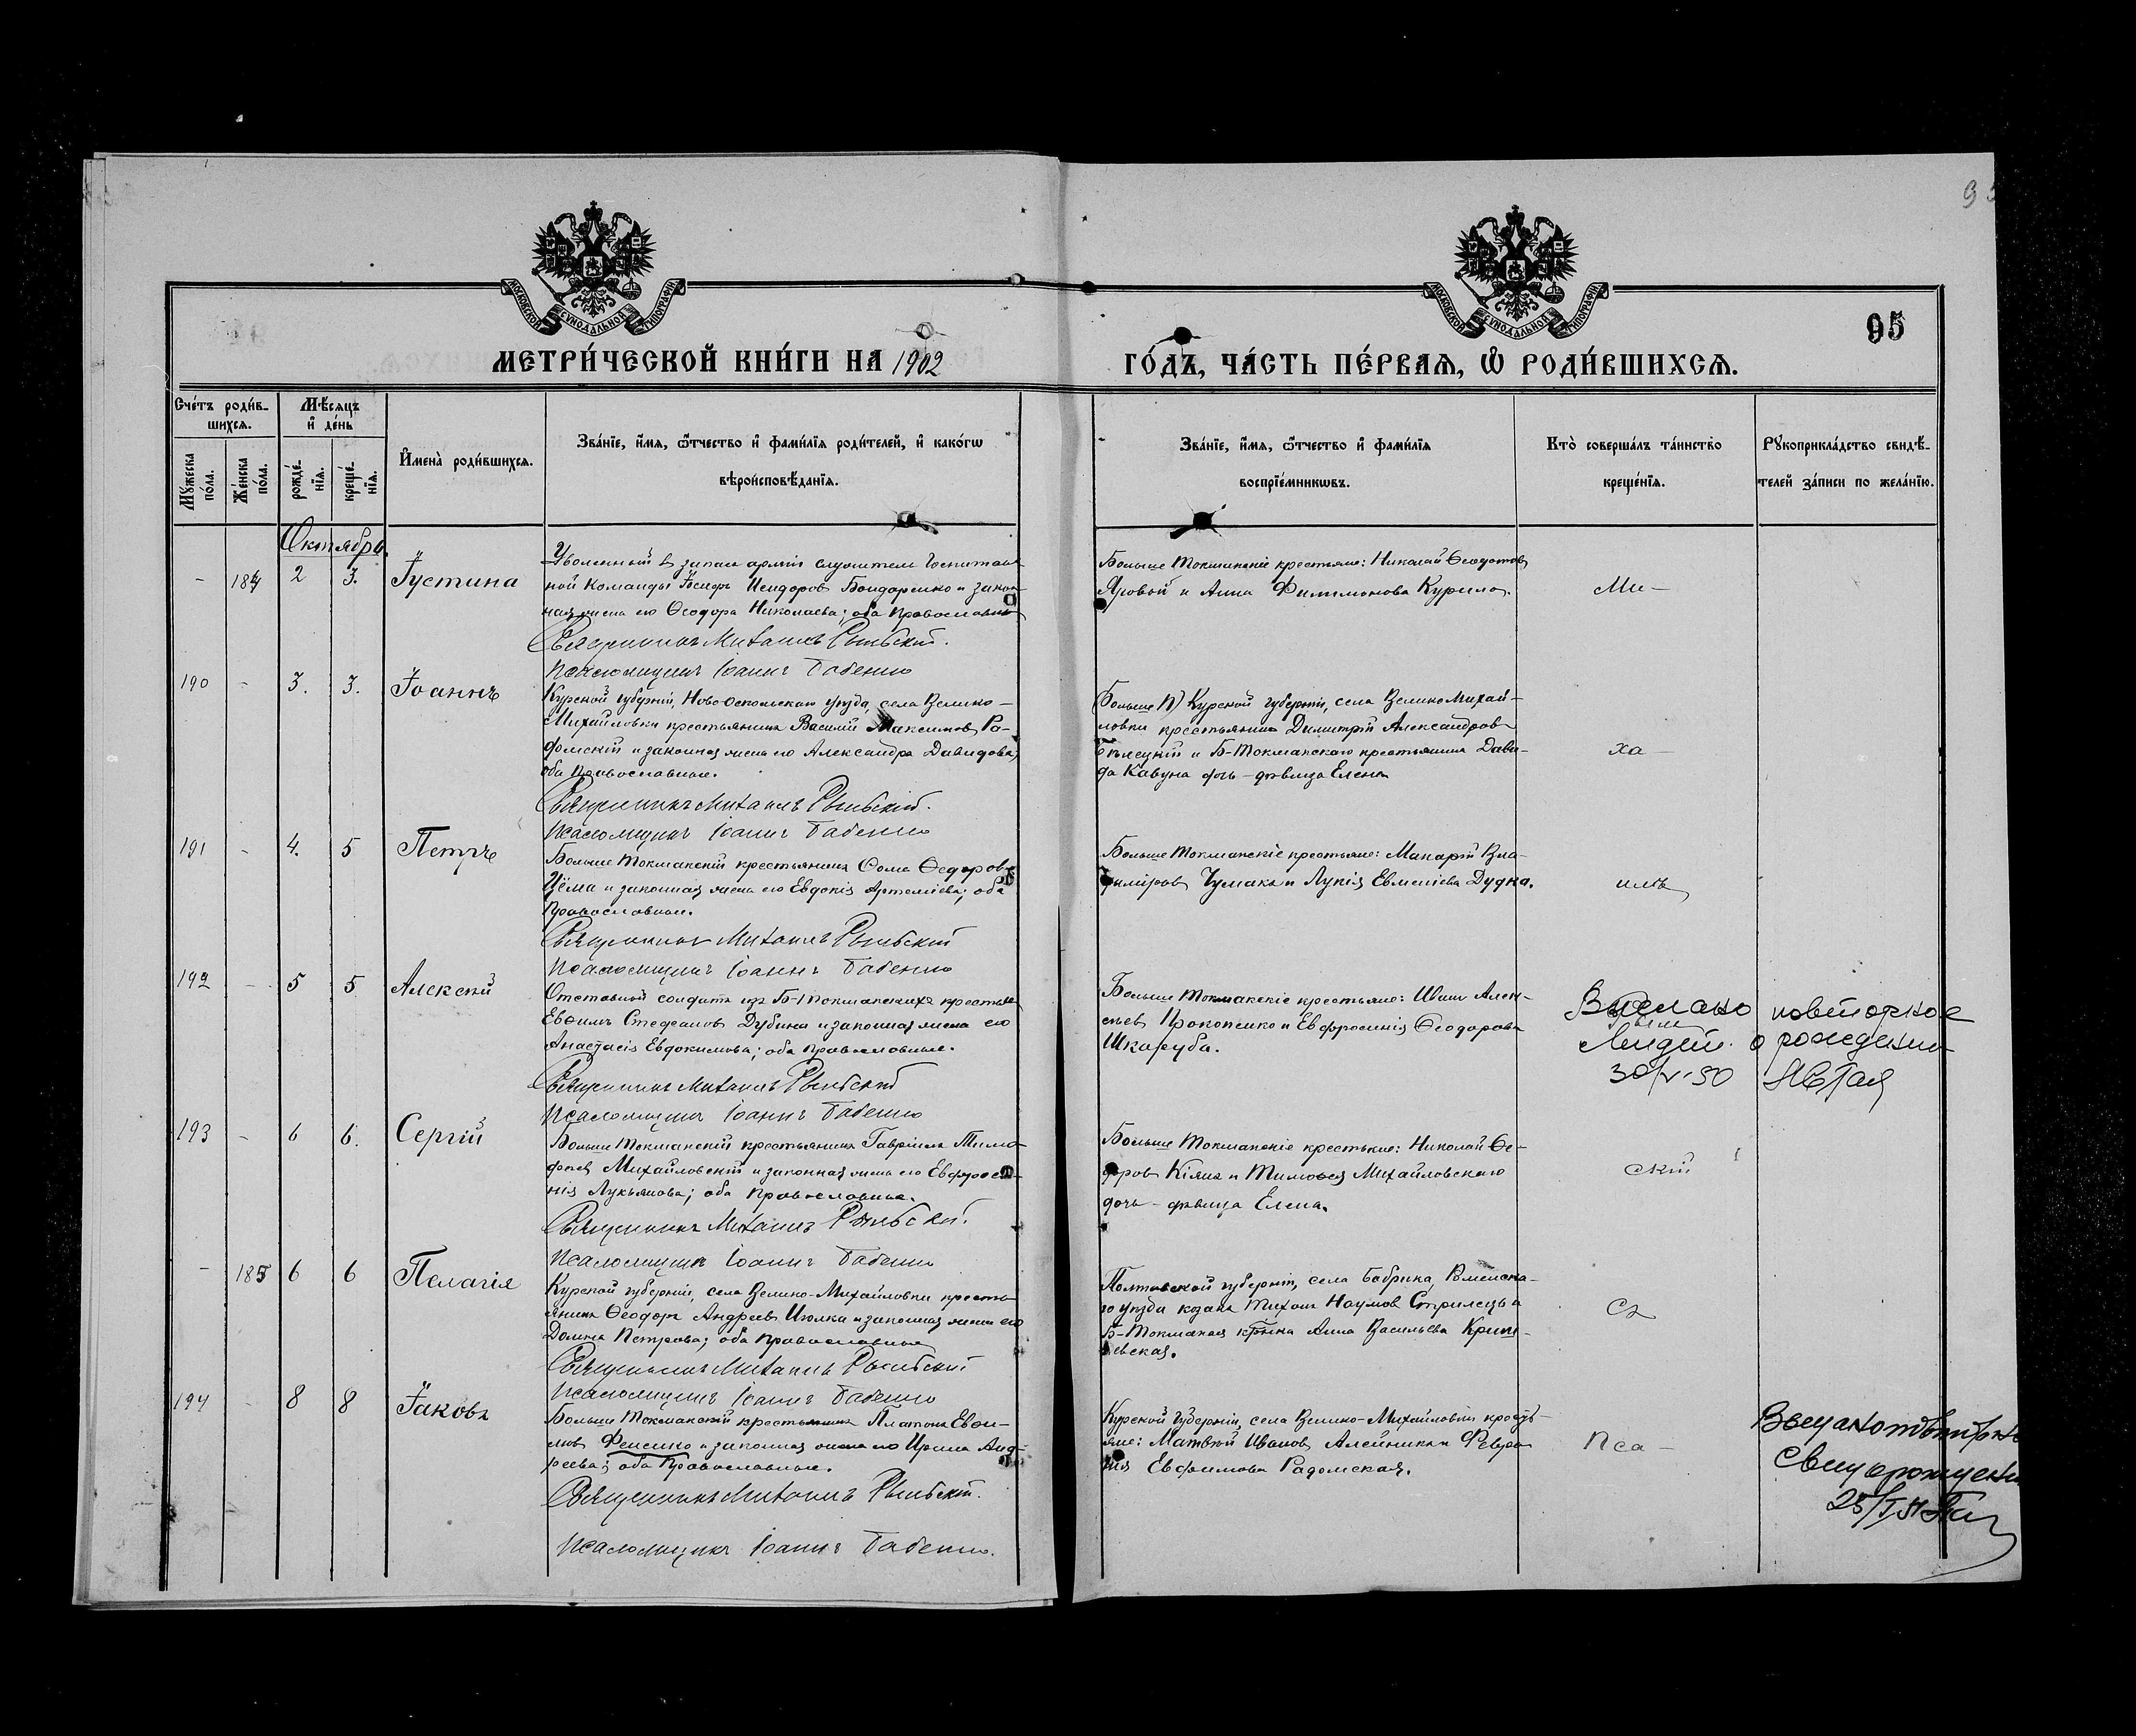 95
МОСКОВСКОЙ СУНОДАЛЬНОЙ ТИПОГРАФІИ
МОСКОВСКОЙ СУНОДАЛЬНОЙ ТИПОГРАФІИ
95
МЕТРИ́ЧЕСКОЙ КНИ́ГИ НА 1902
ГО́ДЪ, ЧА́СТЬ ПЕ́РВАѦ, Ѽ РОДИ́ВШИХСѦ.
Сче́тъ роди́в-
шихсѧ.
Мѣ́сѧцъ
и҆ де́нь
Мꙋ́жеска
по́ла.
Же́нска
по́ла.
рожде́-
нїѧ.
креще́-
нїѧ.
И҆мена̀ роди́вшихсѧ.
Зва́нїе, и҆́мѧ, ѻ҆́тчество и҆ фами́лїѧ роди́телей, и҆ како́гѡ
вѣроисповѣ́данїѧ.
Зва́нїе, и҆́мѧ, ѻ҆́тчество и҆ фами́лїѧ
воспрїе́мникѡвъ.
Кто̀ соверша́лъ та́инство
креще́нїѧ.
Рꙋкоприкла́дство свидѣ́-
телей за́писи по жела́нїю.
Октябрь
- 184 2 3. Іустина
Уволенный в запас арміи служитель Госпиталь
ной команды Іосифъ Исидоровъ Бондаренко и закон-
ная жена его Ѳеодора Николаева; оба Православные
Священникъ Михаилъ
Псаломщикъ Іоаннъ Бабенко
Больше Токмакскіе крестьяне: Николай Ѳеодотовъ
Яровой и Анна Филимонова Курило.
Ми-
190 - 3. 3. Іоаннъ
Курской губерніи, Ново-Оскольскаго уѣзда, села Велико-
Михайловки крестьянинъ Василій Максимовъ Ра-
домскій и законная жена его Александра Давидова,
оба Православные.
Священникъ Михаилъ
Псаломщикъ Іоаннъ Бабенко
Курской губерніи, села ВеликоМихай-
ловки крестьянинъ Димитрій Александровъ
и Б-Токмакскаго крестьянина Дави-
да Кавуна дочь - дѣвица Елена
ха-
191 - 4. 5 Петръ
Больше Токмакскій крестьянинъ Ѳома Ѳедоровъ
Цёма и законная жена его Евдокія Артеміева; оба
Православные.
Священникъ Михаилъ
Псаломщикъ Іоаннъ Бабенко
Больше Токмакскіе крестьяне: Макарій Вла-
диміровъ Чумакъ и Лукія Евменіева Дудка.
илъ
192 - 5 5 Алексій
Отставной солдатъ изъ Б-Токмакскихъ крестьян
Евѳимъ Стефановъ Дубина и законная жена его
Анастасія Евдокимова; оба Православные.
Священникъ Михаилъ
Псаломщикъ Іоаннъ Бабенко
Больше Токмакскіе крестьяне: Иванъ Алек-
сѣевъ Прокопенко и Евфросинія Ѳеодорова
Шкаруба.
Ры
Выслано повторное
о рождении
193 - 6 6. Сергій
Больше Токмакскій крестьянинъ Гавріилъ Тимо-
феевъ Михайловскій и законная жена его Евфроси-
нія Лукьянова; оба Православные.
Священникъ Михаилъ
Псаломщикъ Іоаннъ Бабенко
Больше Токмакскіе крестьяне: Николай Ѳе-
доровъ Кіяшк и Тимоѳея Михайловскаго
дочь - дѣвица Елена.
скій
- 185 6 6 Пелагія
Курской губерніи, села Велико-Михайловки кресть-
янинъ Ѳеодоръ Андреевъ и законная жена его
Домна Петрова; оба Православные
Священникъ Михаилъ
Псаломщикъ Іоаннъ Бабенко
Полтавской губерніи, села Бобрика, Роменска-
го уѣзда козакъ Тихонъ Наумовъ Стрилецъ и
Б-Токмакая Анна Васильева
съ
194 - 8 8 Іаковъ
Больше Токмакскій крестьянинъ Платонъ Евѳи-
мовъ Фесенко и законная жена его Ирина Анд-
реева; оба Православные.
Священникъ Михаилъ
Псаломщикъ Іоаннъ Бабенко.
Курской губерніи, села Велико-Михайловки кресть-
яне: Матвѣй Ивановъ Алейникъ и Февро-
нія Евфимова Радомская.
Пса-